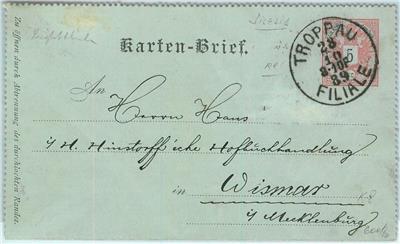 Silesia
Karten-Brief.
TROPPAU
28
10
89
FILIALE
5
Zu öffnen durch Abtrennung des durchlochten Randes.
An
Herrn Hans
i/H. Hinstorff'sche Hofbuchhandlung
in Wismar
i/ Mecklenburg